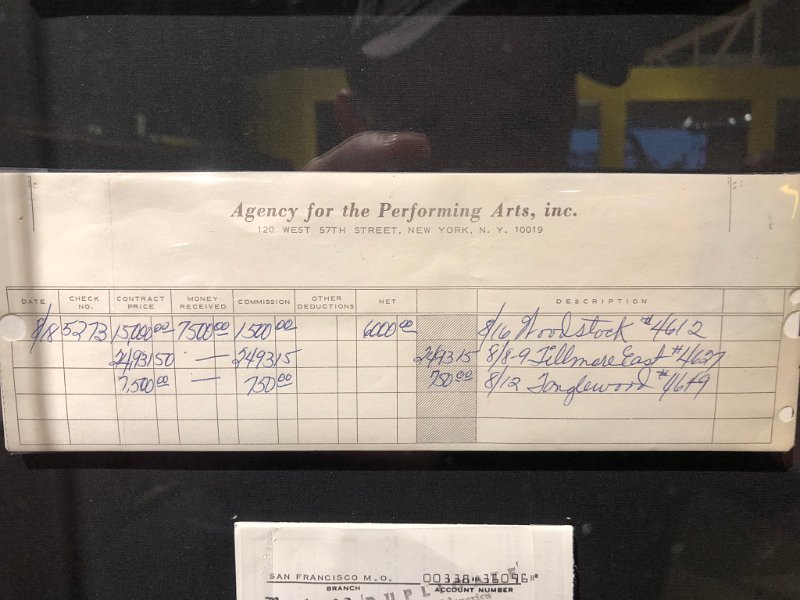 Agency for the Performing Arts, inc.
120 WEST 57TH STREET, NEW YORK, N. Y. 10019
DATE CHECK NO. CONTRACT PRICE MONEY RECEIVED COMMISSION OTHER DEDUCTIONS NET DESCRIPTION
8/18 5273 15,000.00 7500.00 1500.00 6000.00 8/16 Woodstock #4612
24,931.50 — 2493.15 2493.15 8/8-9 Fillmore East #4627
7,500.00 — 750.00 750.00 8/12 Tanglewood
SAN FRANCISCO M.O. 00338-36096
BRANCH ACCOUNT NUMBER
DUPLICATE